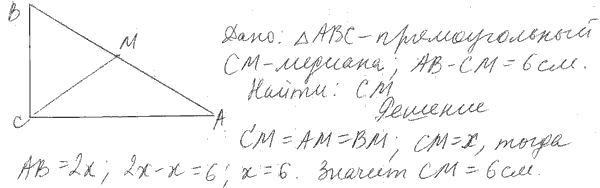 B
M
C
A
Дано: △ABC – прямоугольный
CM – медиана; AB - CM = 6 см.
Найти: CM
Решение
CM = AM = BM; CM = x, тогда
AB = 2x; 2x - x = 6; x = 6. Значит CM = 6 см.